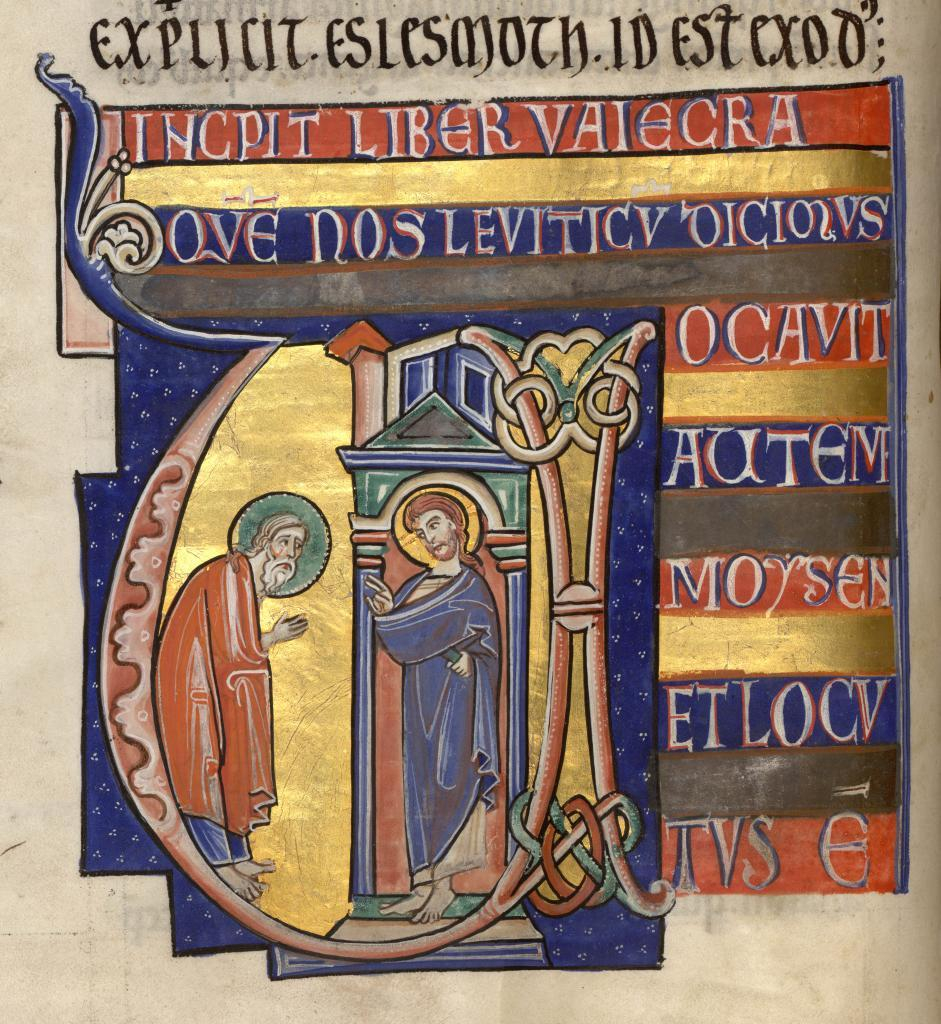 EXPLICIT. ESLESMOTH. ID EST EXOD;
INCPIT LIBER VAIECRA
QVE NOS LEVITICV DICIMVS
V
OCAVIT
AUTEM
MOYSEN
ET LOCV
TVS E